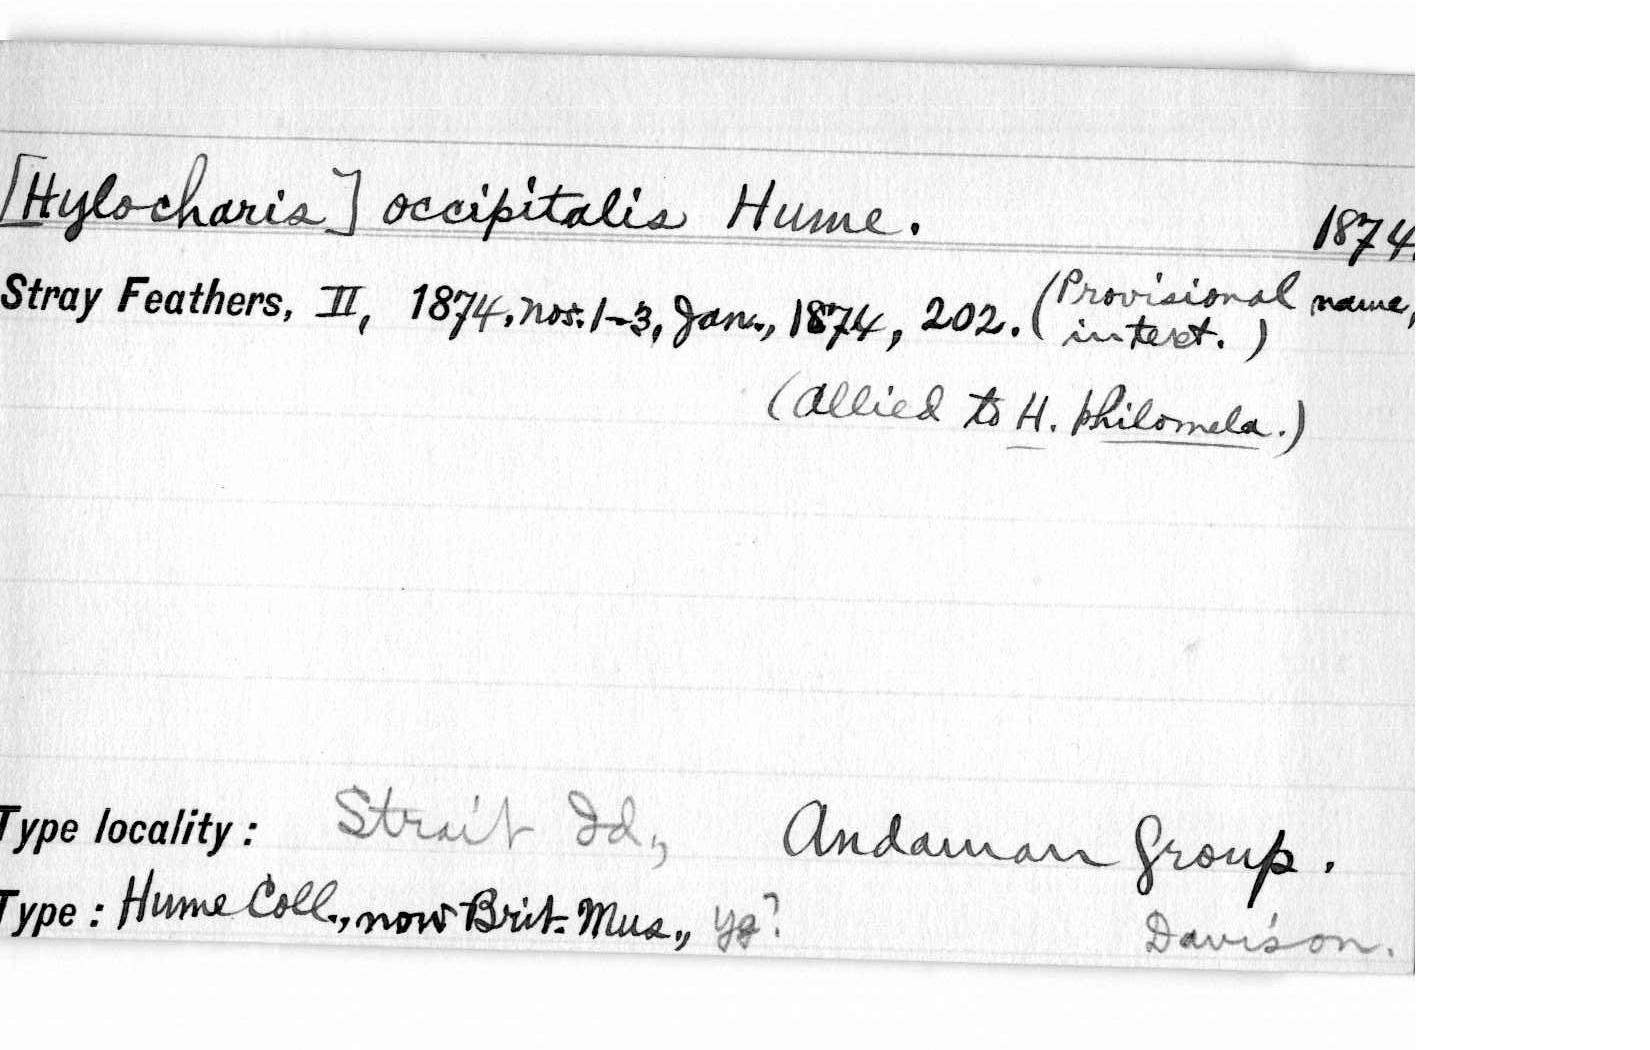 [Hylocharis] occipitalis Hume. 1874.
Stray Feathers, II, 1874, nos. 1-3, Jan., 1874, 202. (Provisional name,
in text.)
(Allied to H. philomela.)
Type locality: Strait Id., Andaman Group.
Type: Hume Coll., now Brit. Mus., yg? Davison.